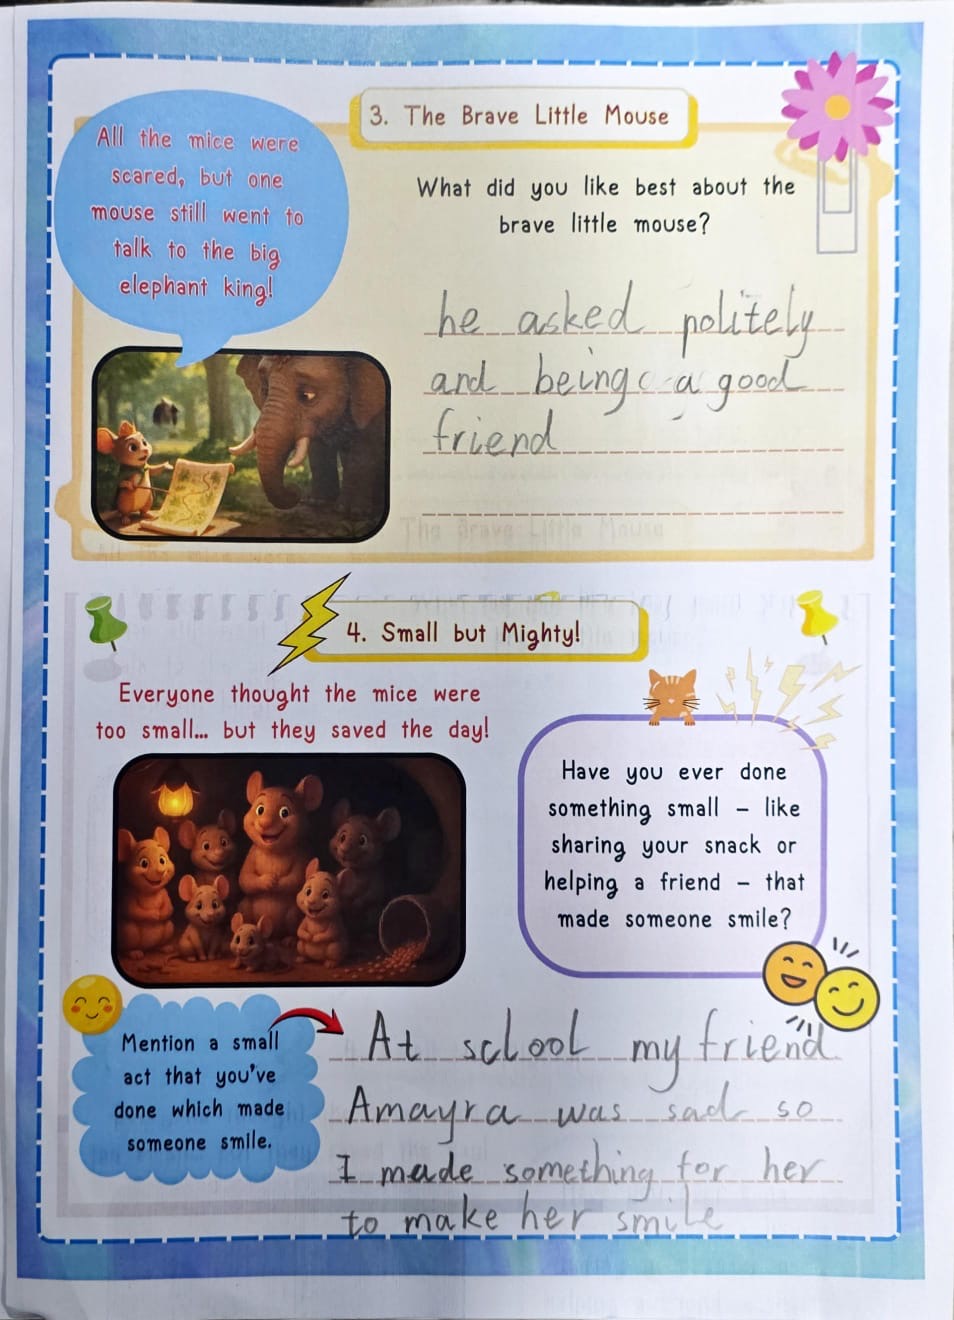 3. The Brave Little Mouse
All the mice were
scared, but one
mouse still went to
talk to the big
elephant king!
What did you like best about the
brave little mouse?
he asked politely
and being a good
friend
4. Small but Mighty!
Everyone thought the mice were
too small... but they saved the day!
Have you ever done
something small – like
sharing your snack or
helping a friend – that
made someone smile?
Mention a small
act that you've
done which made
someone smile.
At sclool my friend
Amayra was sad so
I made something for her
to make her smile